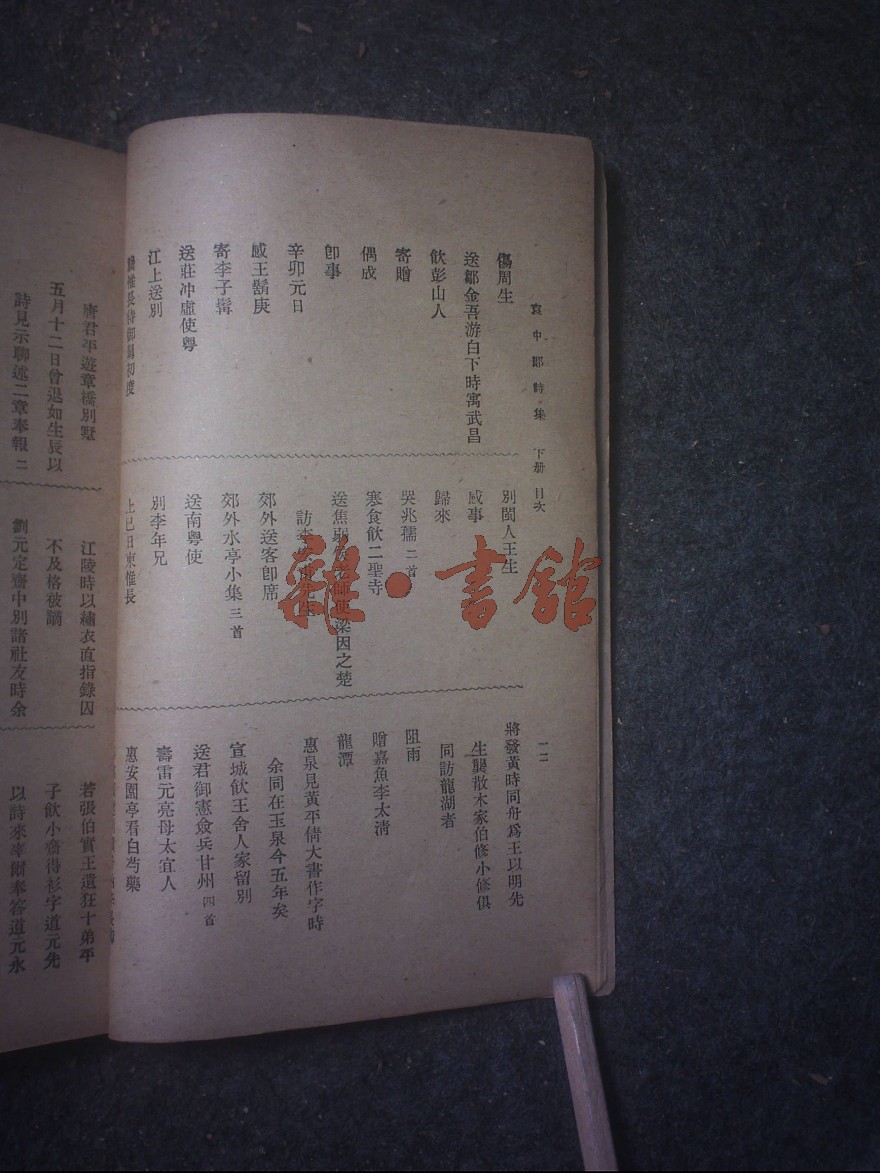 袁中郎詩集 下册 目次
傷周生
送鄒金吾游白下時寓武昌
飲彭山人
寄贈
偶成
卽事
辛卯元日
感王鬍庚
寄李子髯
送莊冲虛使粵
江上送別
初度
別閩人王生
感事
歸來
哭兆孺 二首
寒食飲二聖寺
送焦弱侯老師使梁因之楚
訪李
先生
郊外送客卽席
郊外水亭小集 三首
送南粵使
別李年兄
上巳日柬惟長
一二
將發黃時同舟爲王以明先
生龔散木家伯修小修俱
同訪龍湖者
阻雨
贈嘉魚李太清
龍潭
惠泉見黃平倩大書作字時
余同在玉泉今五年矣
宣城飲王舍人家留別
送君御憲僉兵甘州 四首
壽雷元亮母太宜人
惠安園亭看白芍藥
唐君平遊章橋別墅
五月十二日曾退如生辰以
時見示聊述二章奉報 二
江陵時以繡衣直指錄囚
不及格被謫
劉元定齋中別諸社友時余
若張伯實王遺狂十弟平
子飲小齋得衫字道元先
以詩來率爾奉答道元永
雜·書館